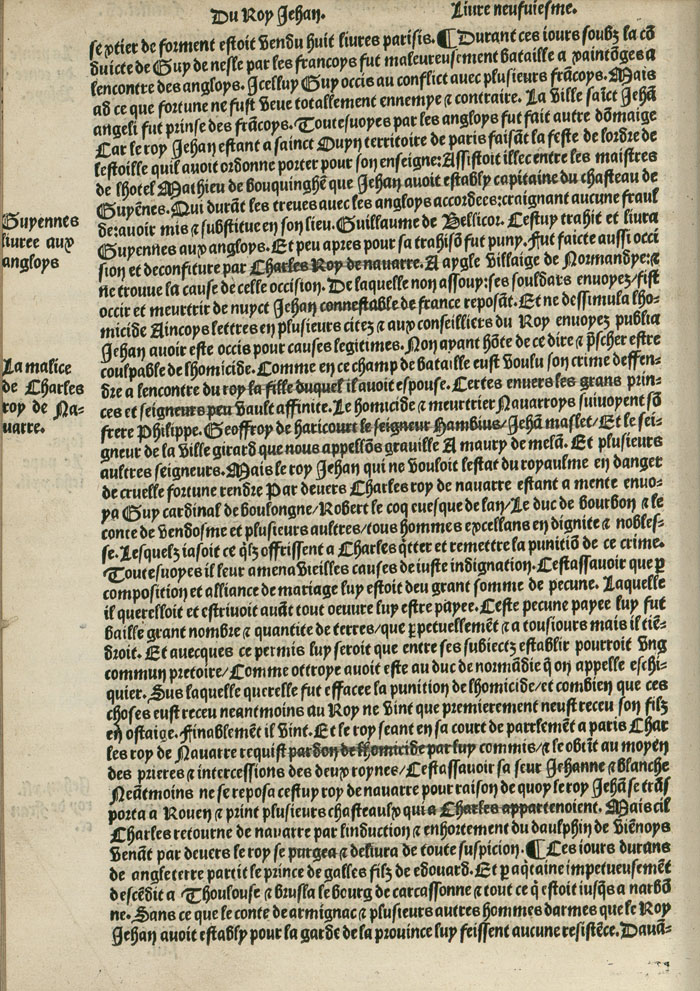 Du Roy Jehan.
Liure neufuiesme.
sextier de forment estoit vendu huit liures parisis. ¶ Durant ces iours soubz la cõ
duicte de Guy de nesle par les francoys fut maleureusement bataille a xaintõges a
lencontre des angloys. Icelluy Guy occis au conflict auec plusieurs frãcoys. Mais
ad ce que fortune ne fust veue totallement ennemye ⁊ contraire. La ville saĩct Jehã
angeli fut prinse des frãcoys. Toutesuoyes par les angloys fut fait autre dõmaige
Car le roy Jehan estant a sainct Ouyn territoire de paris faisãt la feste de lordre de
lestoille quil auoit ordonne porter pour son enseigne: Assistoit illec entre les maistres
de lhotel Mathieu de bouquinghẽ que Jehan auoit estably capitaine du chasteau de
Guyẽnes. Qui durãt les treues auec les angloys accordees: craignant aucune fraul
de: auoir mis ⁊ substitue en son lieu. Guillaume de Bellicor. Cestuy trahit et liura
Guyennes aux angloys. Et peu apres pour sa trahisõ fut puny. Fut faicte aussi occi
sion et deconfiture par Charles Roy de nauarre. A aygle villaige de Normandye: ⁊
ne trouue la cause de celle occision. De laquelle non assouy: ses souldars enuoyez/ fist
occir et meurtrir de nuyct Jehan connestable de france reposãt. Et ne dessimula lho-
micide Aincoys lettres en plusieurs citez ⁊ aux conseilliers du Roy enuoyez publia
Jehan auoir este occis pour causes legitimes. Non ayant hõte de ce dire ⁊ p̃scher estre
coulpable de lhomicide. Comme en ce champ de bataille eust voulu son crime deffen-
dre a lencontre du roy la fille duquel il auoit espouse. Certes enuers les grans prin-
ces et seigneurs peu vault affinite. Le homicide ⁊ meurtrier Nauarroys suiuoyent sõ
frere Philippe. Geoffroy de haricourt le seigneur Hambius/ Jehã maslet/ Et le sei-
gneur de la ville girard que nous appellõs grauille A maury de melã. Et plusieurs
aultres seigneurs. Mais le roy Jehan qui ne vouloit lestat du royaulme en danger
de cruelle fortune rendre Par deuers Charles roy de nauarre estant a mente enuo-
ya Guy cardinal de boulongne/ Robert le coq euesque de lan/ Le duc de bourbon ⁊ le
conte de vendosme et plusieurs aultres/ tous hommes excellans en dignite ⁊ nobles-
se. Lesquelz iasoit ce q̃lz offrissent a Charles q̃tter et remettre la punitiõ de ce crime.
Toutesuoyes il leur amena vieilles causes de iuste indignation. Cestassauoir que ꝑ
composition et alliance de mariage luy estoit deu grant somme de pecune. Laquelle
il querelloit et estriuoit auãt tout oeuure luy estre payee. Ceste pecune payee luy fut
baille grant nombre ⁊ quantite de terres/ que ꝑpetuellemẽt ⁊ a tousiours mais il tiẽ-
droit. Et auecques ce permis luy seroit que entre ses subiectz establir pourroit vng
commun pretoire/ Comme ottroye auoit este au duc de normãdie q̃ on appelle eschi-
quier. Sus laquelle querelle fut effacee la punition de lhomicide/ et combien que ces
choses eust receu neantmoins au Roy ne vint que premierement neust receu son filz
en ostaige. Finablemẽt il vint. Et le roy seant en sa court de parrlemẽt a paris Char
les roy de Nauarre requist pardon de lhomicide par luy commis/ ⁊ le obtĩt au moyen
des prieres ⁊ intercessions des deux roynes/ Cestassauoir sa seur Jehanne ⁊ blanche
Neãtmoins ne se reposa cestuy roy de nauarre pour raison de quoy le roy Jehã se trãs
porta a Rouen ⁊ print plusieurs chasteaulx qui a Charles appartenoient. Mais cil
Charles retourne de nauarre par linduction ⁊ enhortement du daulphin de viẽnoys
venãt par deuers le roy se purgea ⁊ deliura de toute suspicion. ¶ Ces iours durans
de angleterre partit le prince de galles filz de edouard. Et p aq̃taine impetueusemẽt
descẽdit a Thoulouse ⁊ brusla le bourg de carcassonne ⁊ tout ce q̃ estoit iusq̃s a narbõ
ne. Sans ce que le conte de armignac ⁊ plusieurs autres hommes darmes que le Roy
Jehan auoit estably pour la garde de la prouince luy feissent aucune resistẽce. Dauã-
Guyennes
liuree aux
angloys
La malice
de Charles
roy de Na-
uarre.